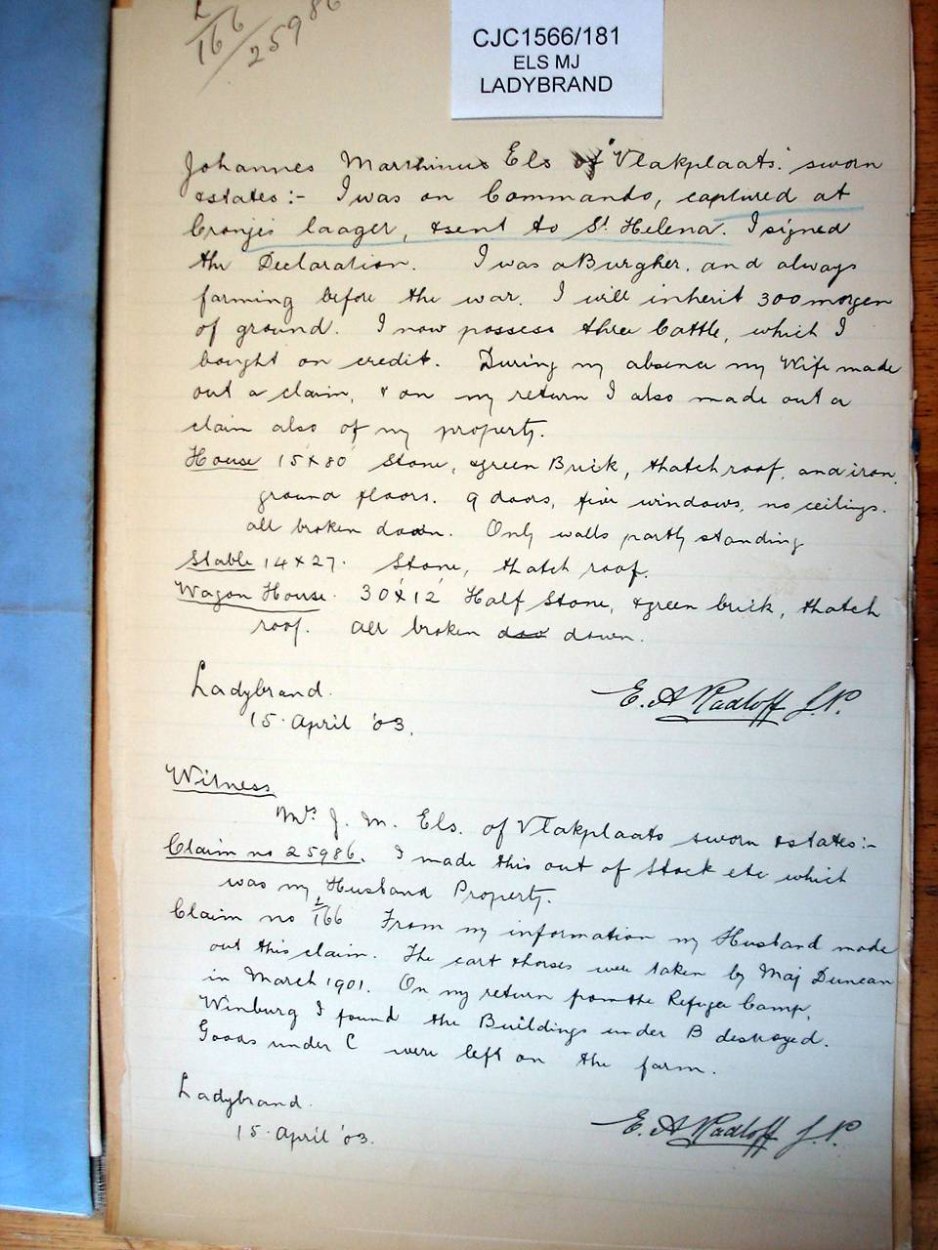 L/166/25986
CJC1566/181
ELS MJ
LADYBRAND
Johannes Marthinus Els of "Vlakplaats". sworn
& states:- I was on Commando, captured at
Cronjes laager, & sent to St Helena. I signed
the Declaration. I was a Burgher, and always
farming before the war. I will inherit 300 morgen
of ground. I now possess three Cattle, which I
bought on credit. During my absence my Wife made
out a claim, & on my return I also made out a
claim also of my property.
House 15 x 80 Stone, & green Brick, thatch roof, and iron,
ground floors. 9 doors, five windows, no ceilings.
all broken down. Only walls partly standing
Stable 14 x 27. Stone, thatch roof.
Wagon House. 30' x 12' Half Stone, & green brick, thatch
roof. All broken down.
Ladybrand.
15. April '03.
E. A Radloff J.P.
Witness
Mrs J. M. Els. of Vlakplaats sworn & states:-
Claim no 25986. I made this out of Stock etc which
was my Husband Property.
Claim no L/166 From my information my Husband made
out this claim. The cart & horses were taken by Maj Duncan
in March 1901. On my return from the Refugee Camp,
Winburg I found the Buildings under B destroyed.
Goods under C were left on the farm.
Ladybrand.
15. April '03.
E. A Radloff J.P.